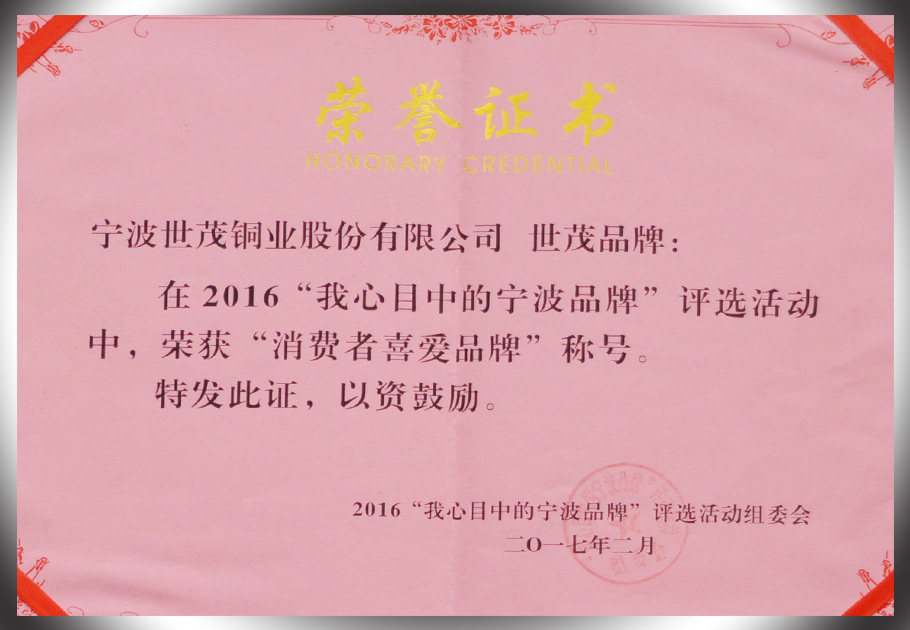 荣誉证书
HONORARY CREDENTIAL
宁波世茂铜业股份有限公司 世茂品牌：
在2016“我心目中的宁波品牌”评选活动
中，荣获“消费者喜爱品牌”称号。
特发此证，以资鼓励。
2016“我心目中的宁波品牌”评选活动组委会
二O一七年二月